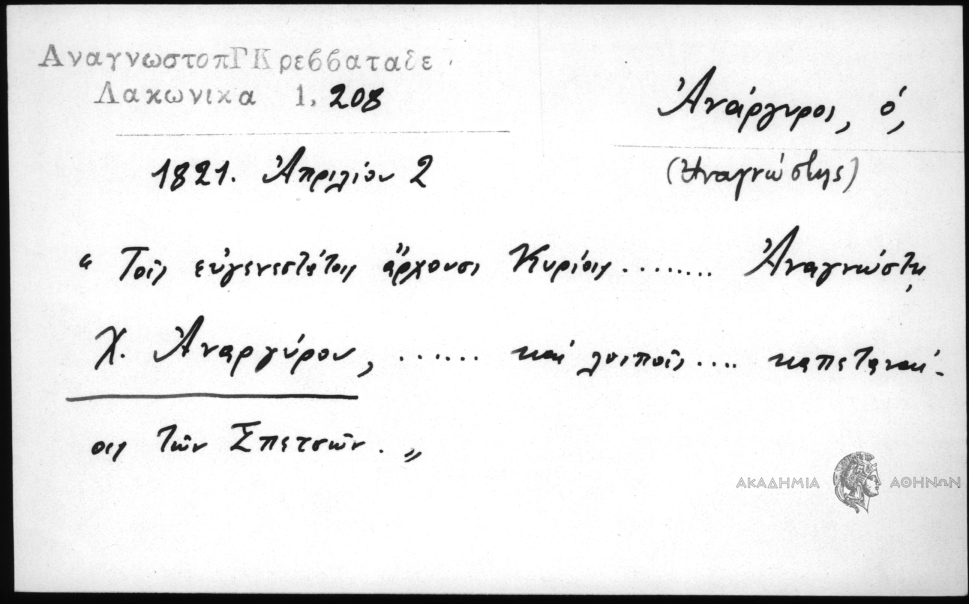 ΑναγνωστοπΓΚρεββαταδε
Λακωνικα 1, 208
Ἀνάργυρος, ὁ,
(Ἀναγνώστης)
1821. Ἀπριλίου 2
" Τοῖς εὐγενεστάτοις ἄρχουσι Κυρίοις ........ Ἀναγνώστῃ
Χ. Ἀναργύρου, ...... καὶ λοιποῖς .... καπεταναί-
οις τῶν Σπετσῶν. "
ΑΚΑΔΗΜΙΑ ΑΘΗΝΩΝ